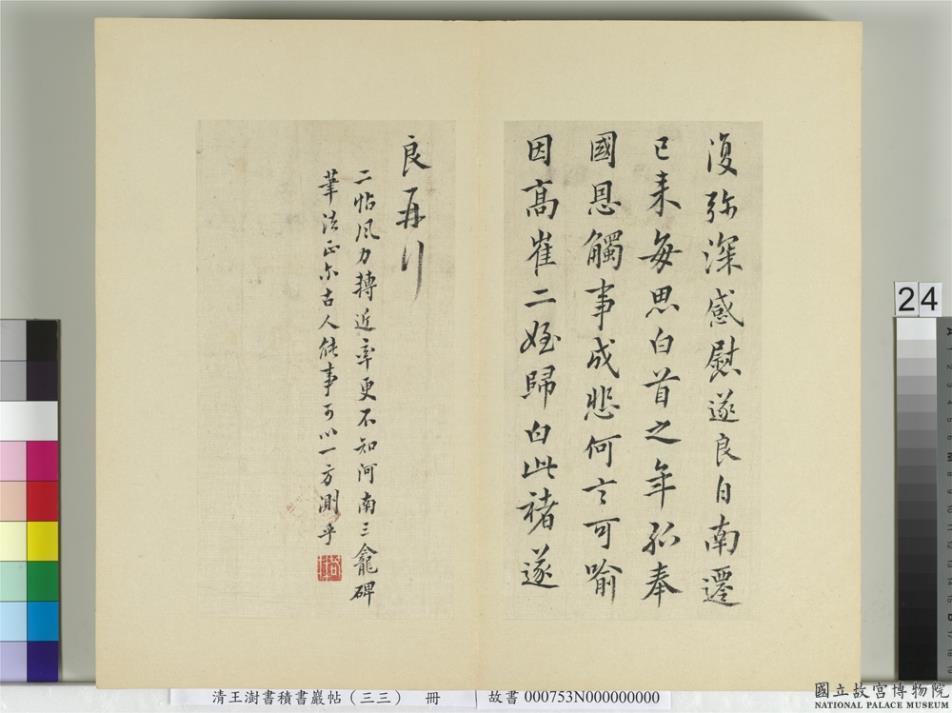 復弥深感慰遂良自南遷
已来每思白首之年孤奉
國恩觸事成悲何言可喻
因高崔二姪歸白此褚遂
良再行
二帖風力轉近率更不知河南三龕碑
筆法正尔古人能事可以一方測乎
24
清王澍書積書巖帖（三三） 冊 故書 000753N000000000
國立故宮博物院
NATIONAL PALACE MUSEUM